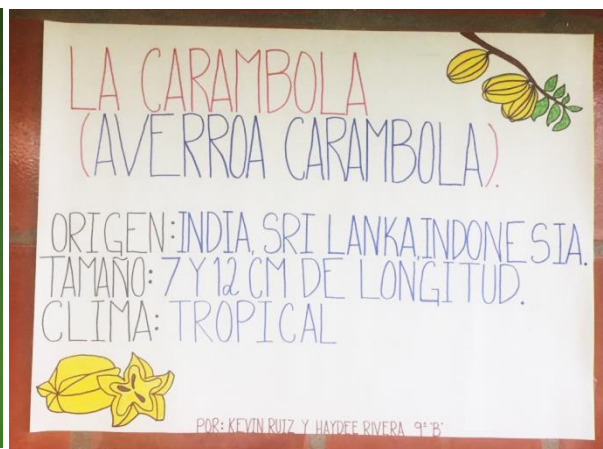 LA CARAMBOLA
(AVERROA CARAMBOLA).
ORIGEN: INDIA, SRI LANKA, INDONESIA.
TAMAÑO: 7 Y 12 CM DE LONGITUD.
CLIMA: TROPICAL
POR: KEVIN RUIZ Y HAYDEE RIVERA 9º "B"